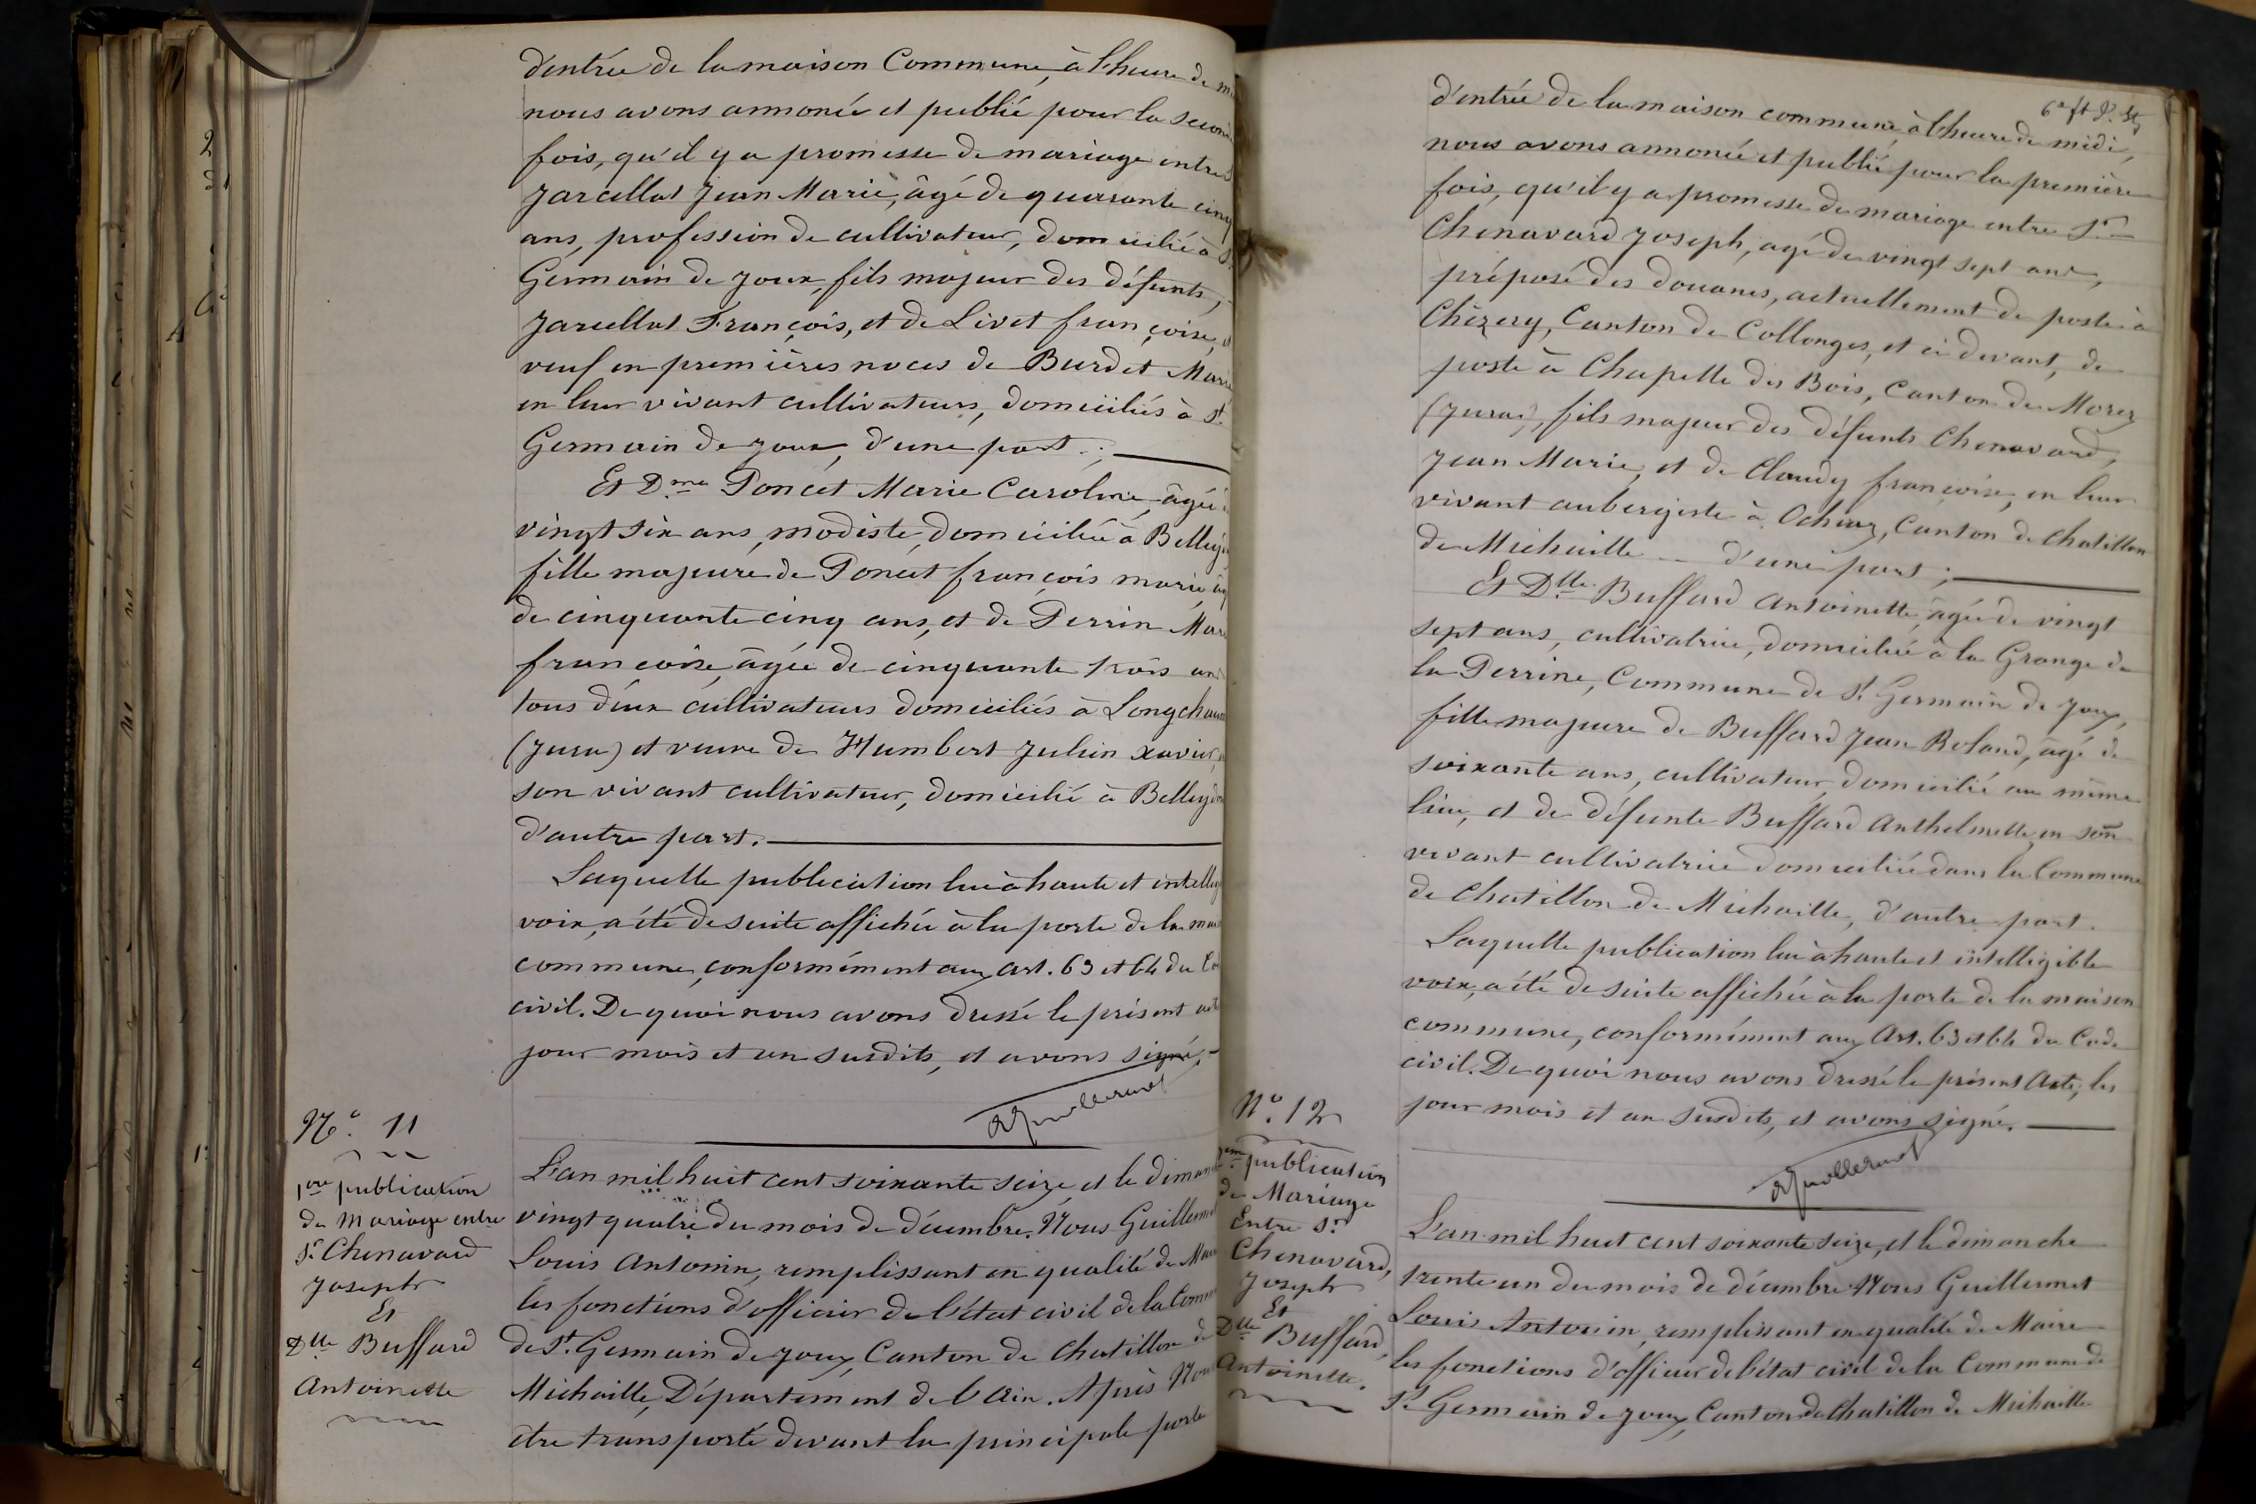 d'entrée de la maison Commune, à l'heure de
nous avons annoncé et publié pour la
fois, qu'il y a promesse de mariage entre
Jarcellat Jean Marie, âgé de quarante cinq
ans, profession de cultivateur, domicilié à St.
Germain de joux, fils majeur des défunts,
Jarcellat François, et de Livet françoise, et
veuf en premières noces de Burdet Marie
en leur vivant cultivateurs, domiciliés à St.
Germain de joux, d'une part ;
Et Dme Poncet Marie Caroline, âgée
vingt six ans, modiste, domiciliée à
fille majeure de Poncet françois marie,
de cinquante cinq ans, et de Perrin
françoise, âgée de cinquante trois ans
tous deux cultivateurs domiciliés à
(Jura) et veuve de Humbert Julien xavier,
son vivant cultivateur, domicilié à
d'autre part.
Laquelle publication lue à haute et
voix, a été de suite affichée à la porte de la
commune, conformément aux art. 63 et 64 du
civil. De quoi nous avons dressé le présent
jour mois et an susdits, et avons signé.
AGuillermet
No. 11
1ère publication
de Mariage entre
Sr. Chenavard
Joseph
Et
Dlle Buffard
Antoinette
L'an mil huit cent soixante seize, et le
vingt quatre du mois de décembre. Nous
Louis Antonin, remplissant en qualité de
les fonctions d'officier de l'état civil de la
de St. Germain de joux, Canton de Chatillon de
Michaille, Département de l'Ain. Après
être transporté devant la principale porte
d'entrée de la maison commune, à l'heure de midi,
nous avons annoncé et publié pour la première
fois, qu'il y a promesse de mariage entre Sr.
Chenavard Joseph, agé de vingt sept ans,
préposé des douanes, actuellement de poste à
Chèzery, Canton de Collonges, et ci devant, de
poste à Chapelle des Bois, Canton de Morez
(Jura), fils majeur des défunts Chenavard,
Jean Marie, et de Claudy françoise, en leur
vivant aubergiste à Ochiaz, Canton de Chatillon
de Michaille d'une part ;
Et Dlle. Buffard Antoinette, âgée de vingt
sept ans, cultivatrice, domiciliée à la Grange de
la Perrine, Commune de St. Germain de Joux,
fille majeure de Buffard Jean Roland, âgé de
soixante ans, cultivateur, domicilié au même
lieu, et de défunte Buffard Anthelmette, en son
vivant cultivatrice domiciliée dans la Commune
de Chatillon de Michaille, d'autre part.
Laquelle publication lue à haute et intelligible
voix, a été de suite affichée à la porte de la maison
commune, conformément aux Art. 63 et 64 du Code
civil. De quoi nous avons dressé le présent Acte, les
jour mois et an susdits, et avons signé.
AGuillermet
No. 12
publication
de Mariage
Entre Sr.
Chenavard,
Joseph
Et
Dlle Buffard,
Antoinette.
L'an mil huit cent soixante seize, et le dimanche
trente un du mois de décembre. Nous Guillermet
Louis Antonin, remplissant en qualité de Maire
les fonctions d'officier de l'état civil de la Commune de
St. Germain de joux, Canton de Chatillon de Michaille